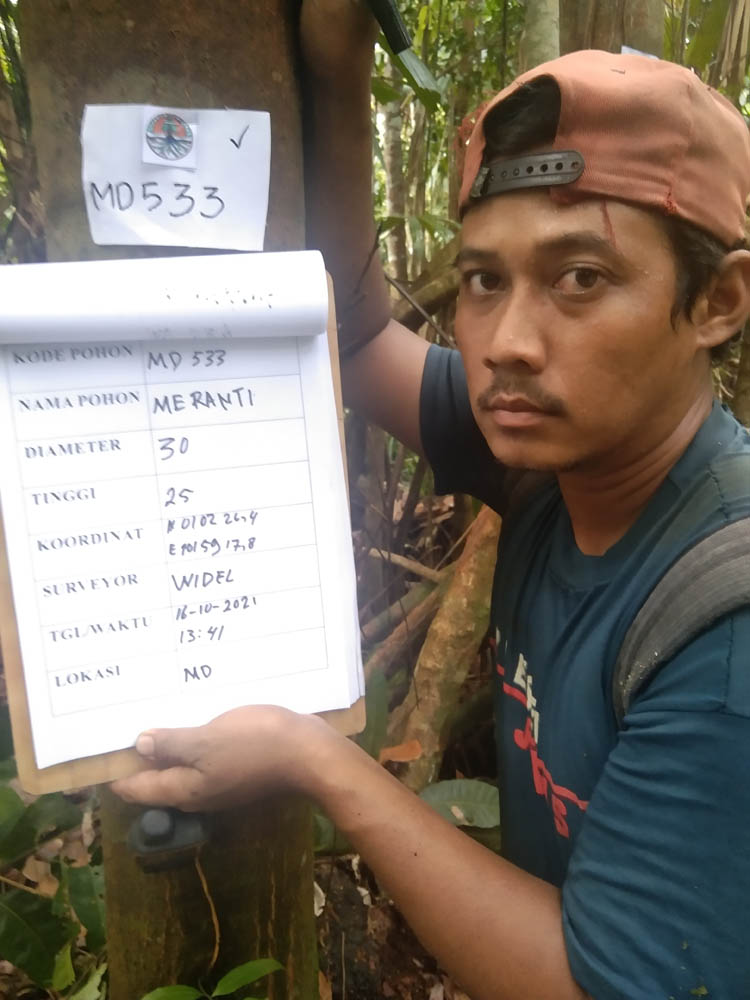 MD533
KODE POHON MD 533
NAMA POHON MERANTI
DIAMETER 30
TINGGI 25
KOORDINAT N 0102 26,4
E 10159 17,8
SURVEYOR WIDEL
TGL/WAKTU 16-10-2021
13:41
LOKASI MD